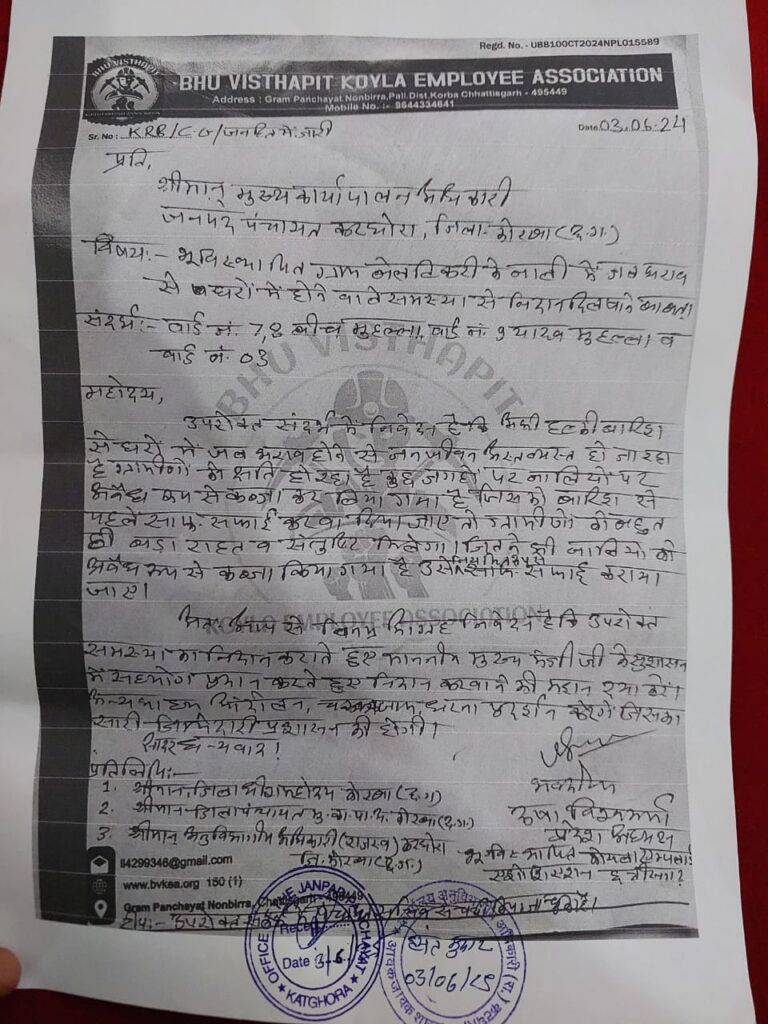 Regd. No. - U88100CT2024NPL015589
BHU VISTHAPIT KOYLA EMPLOYEE ASSOCIATION
Address : Gram Panchayat Nonbirra,Pali.Dist.Korba Chhattisgarh - 495449
Mobile No. :- 9644334641
Sr. No : KRB/C.G/जनहित में जारी
Date 03.06.24
प्रति,
श्रीमान् मुख्य कार्यापालन अधिकारी
जनपद पंचायत कटघोरा, जिला-कोरबा (छ.ग.)
विषय:- भूविस्थापित ग्राम बेलटिकरी के नाली में जल भराव
से घरों में होने वाले समस्या से निदान दिलवाने बाबत।
संदर्भ:- वार्ड नं. 7,8 बीच मुहल्ला, वार्ड नं. 9 यादव मुहल्ला व
वार्ड नं. 03
महोदय,
उपरोक्त संदर्भ में निवेदन है कि अभी हल्की बारिश
से घरों में जल भराव होने से जनजीवन अस्त व्यस्त हो जा रहा
है ग्रामीणों को क्षति हो रहा है कुछ जगहों पर नालियों पर
अवैध रूप से कब्जा कर लिया गया है जिसको बारिश से
पहले साफ-सफाई करवा दिया जाए तो ग्रामीणों को बहुत
ही बड़ा राहत व संतुष्टि मिलेगा। जितने भी नालियों को
अवैध रूप से कब्जा किया गया है उसे नियमित रूप से साफ सफाई कराया
जाए।
अतः आप से विनम्र आग्रह निवेदन है कि उपरोक्त
समस्या का निदान कराते हुए माननीय मुख्य मंत्री जी के सुशासन
में सहयोग प्रदान करते हुए निदान करवाने की महान दया करें।
अन्यथा हम आंदोलन, चक्काजाम धरना प्रदर्शन करेंगे जिसका
सारी जिम्मेदारी प्रशासन की होगी।
सादर धन्यवाद!
भवदीय
प्रतिलिपि:-
1. श्रीमान् जिलाधीश महोदय कोरबा (छ.ग)
2. श्रीमान् जिला पंचायत मु.का.पा.अ. कोरबा (छ.ग.)
3. श्रीमान् अनुविभागीय अधिकारी (राजस्व) कटघोरा
जि. कोरबा (छ.ग.)
प्रदेश अध्यक्ष
भूविस्थापित कोयला एम्पलाई
ll4299346@gmail.com
www.bvkea.org 150 (1)
Gram Panchayat Nonbirra, Chhattisgarh - 495449
टीप:- उपरोक्त
OFFICE JANPAD PANCHAYAT
Date 3/6
★ KATGHORA ★
03/06/25
BHU VISTHAPIT
KOYLA EMPLOYEE ASSOCIATION